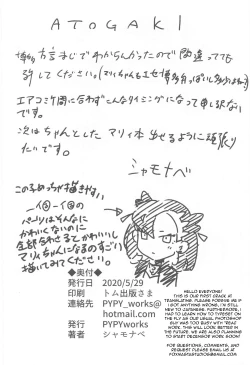 ATOGAKI
博多方言まじでわからんかったので間違ってても
許してください。(マリィちゃんもエセ博多弁っぽいし多少はね?)
エアコミケ間に合わずこんなタイミングになって申し訳ない
です。
次はちゃんとしたマリィ本出せるように頑張り
たいです。
シャモナベ
このふめっちゃ描きやすい
パーツはそんなに
かわいくないのに
全部合わさるとかわいい
マリィちゃんになるのすごい
描いてみてください。
◆奥付◆
発行日 2020/5/29
印刷 トム出版さま
連絡先 PYPY_works@
hotmail.com
発行 PYPY works
著者 シャモナベ
HELLO EVERYONE!
THIS IS OUR FIRST CRACK AT
TRANSLATING. PLEASE FORGIVE ME IF
I GOT ANYTHING WRONG, I'M STILL
NEW TO JAPANESE. FURTHERMORE, I
HAD TO LEARN HOW TO TYPESET ON
THE FLY AS OUR USUAL PHOTOSHOP
GUY WAS TOO BUSY WITH REAL
WORK. THIS WILL LOOK BETTER IN
THE FUTURE. WE ARE ALSO PLANNING
TO START DECENSOR WORK SOON!
FOR QUESTIONS, COMMENTS, AND
REQUEST PLEASE EMAIL US AT